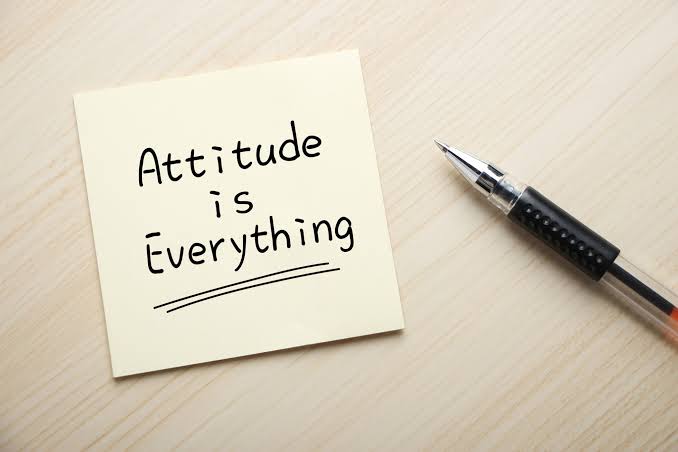 Attitude
is
Everything